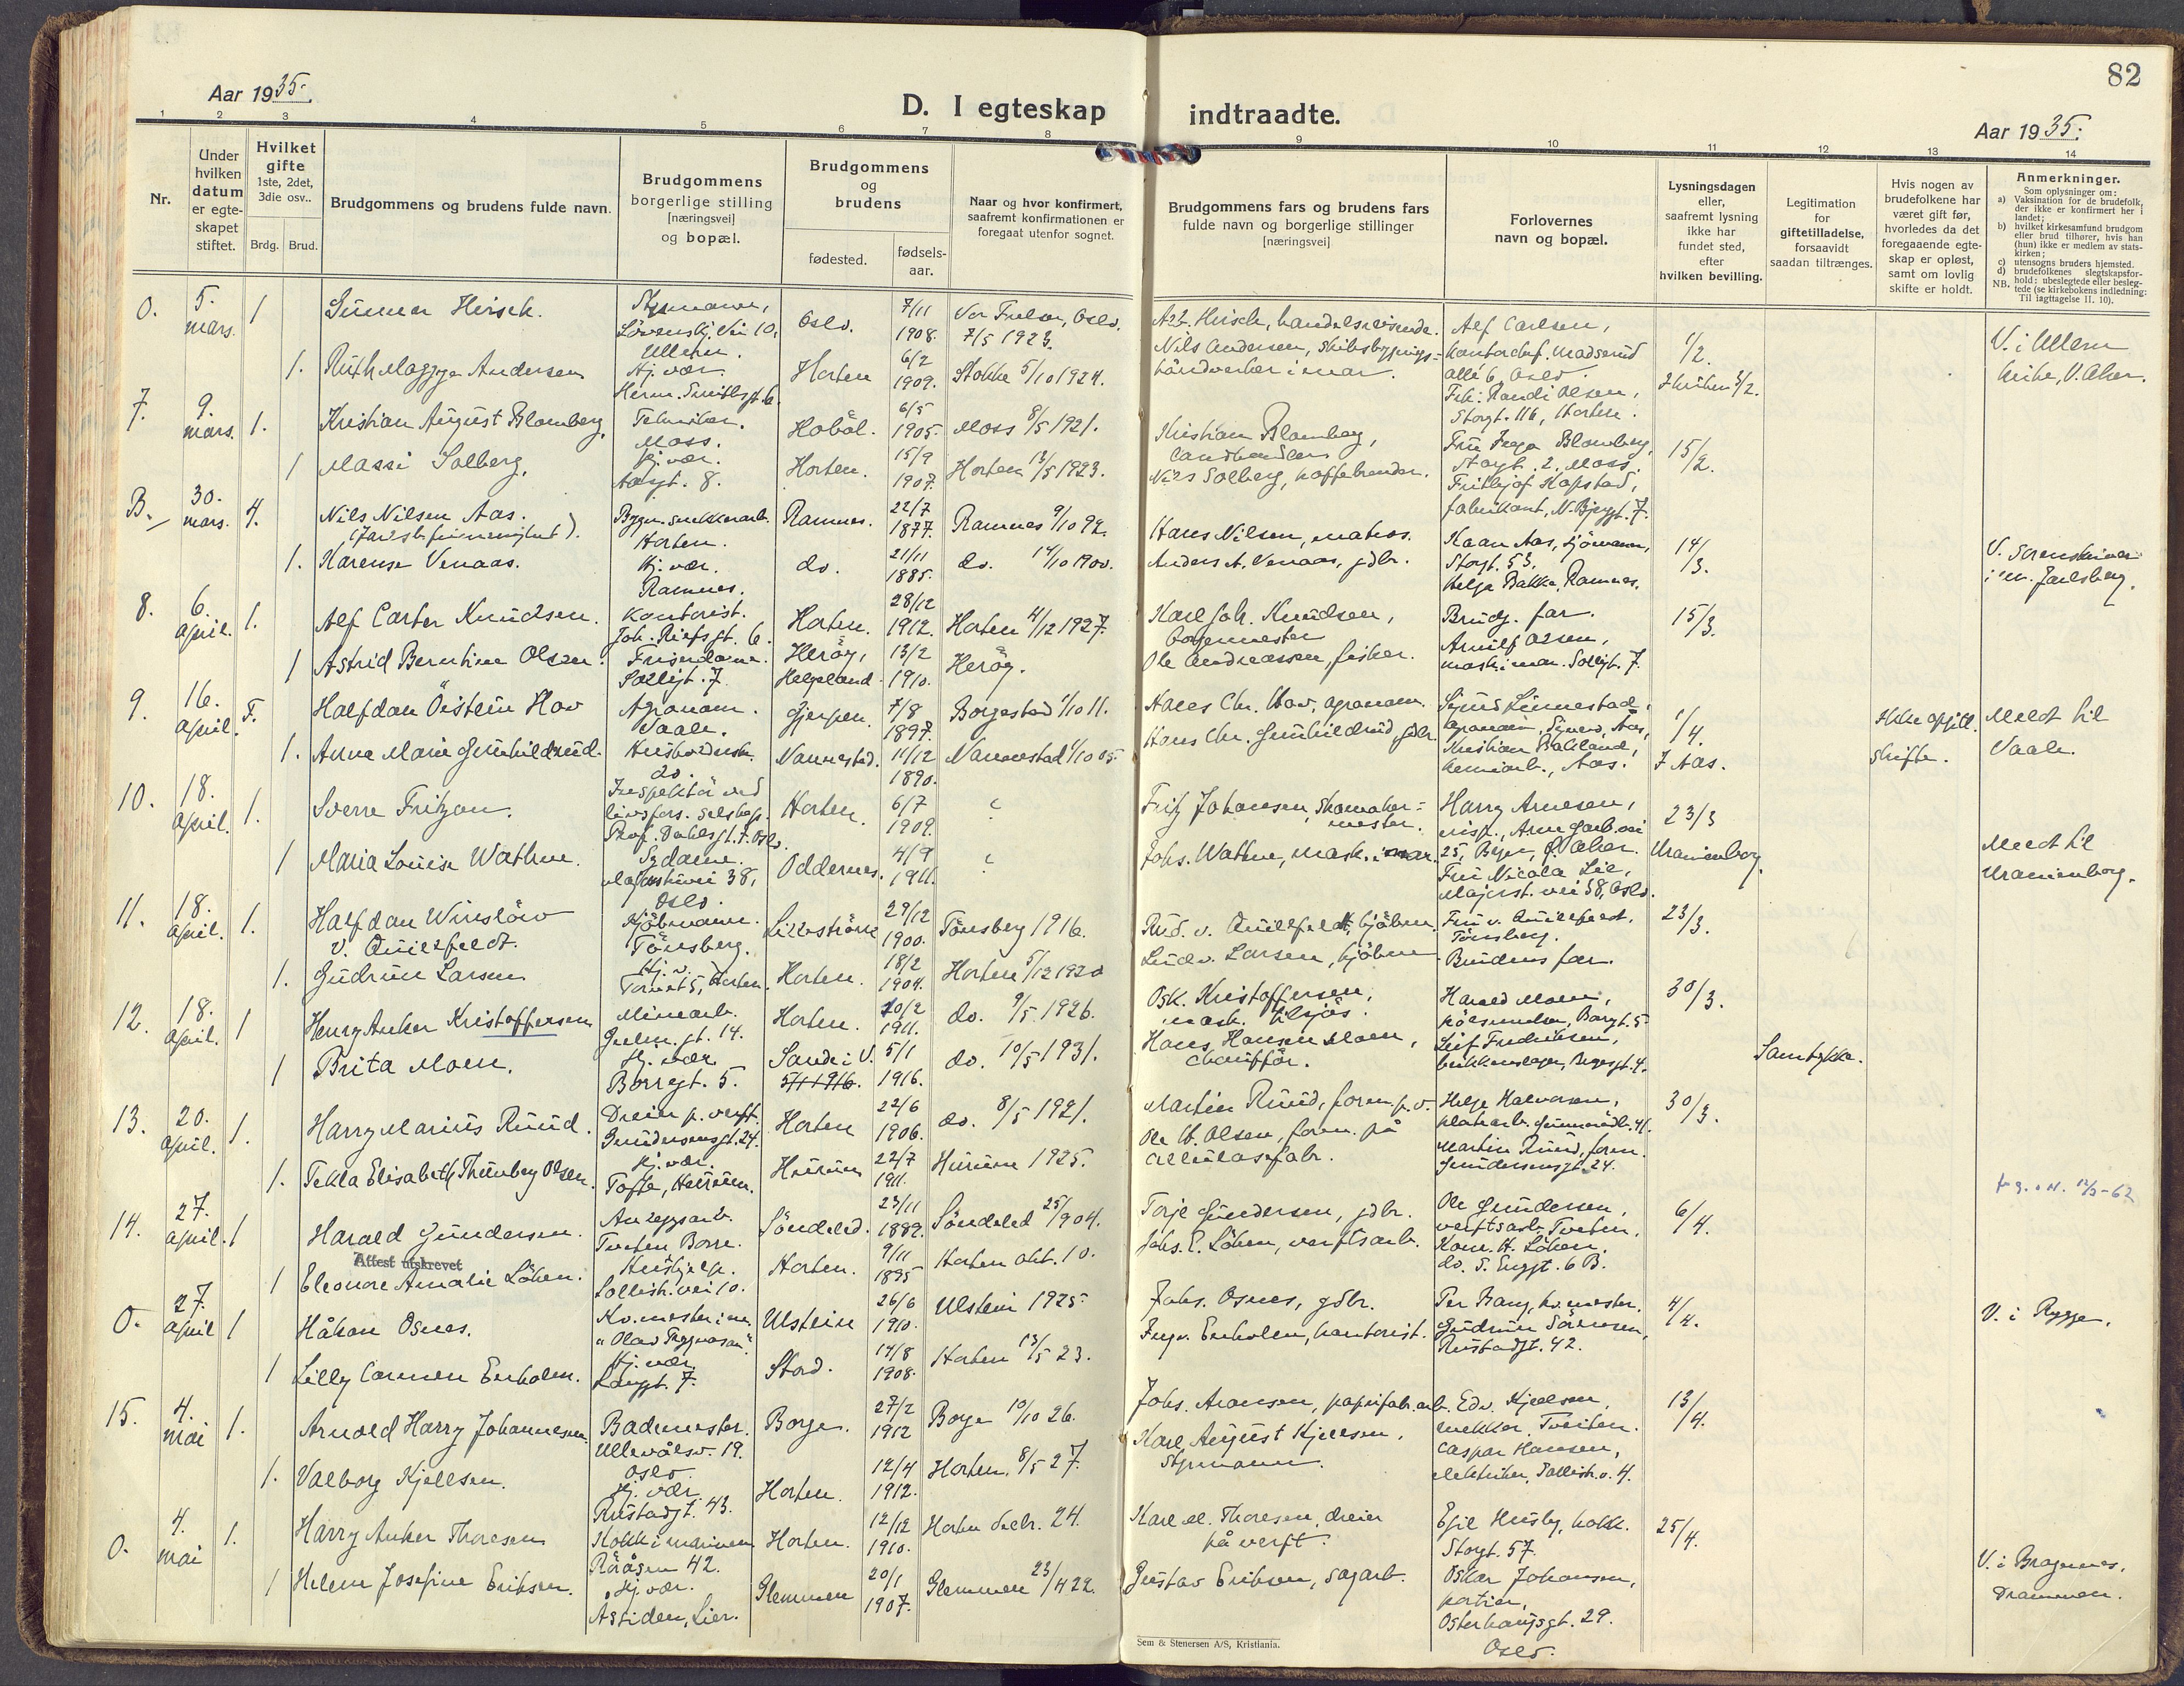 82
Aar 1935.
D. I egteskap indtraadte.
Aar 1935.
1 2 3 4 5 6 7 8 9 10 11 12 13 14
Nr.
Under
hvilken
datum
er egte-
skapet
stiftet.
Hvilket
gifte
1ste, 2det,
3die osv..
Brdg. Brud.
Brudgommens og brudens fulde navn.
Brudgommens
borgerlige stilling
[næringsvei]
og bopæl.
Brudgommens
og
brudens
fødested.
fødsels-
aar.
Naar og hvor konfirmert,
saafremt konfirmationen er
foregaat utenfor sognet.
Brudgommens fars og brudens fars
fulde navn og borgerlige stillinger
[næringsvei]
Forlovernes
navn og bopæl.
Lysningsdagen
eller,
saafremt lysning
ikke har
fundet sted,
efter
hvilken bevilling.
Legitimation
for
giftetilladelse,
forsaavidt
saadan tiltrænges.
Hvis nogen av
brudefolkene har
været gift før,
hvorledes da det
foregaaende egte-
skap er opløst,
samt om lovlig
skifte er holdt.
Anmerkninger.
Som oplysninger om:
a) Vaksination for de brudefolk,
der ikke er konfirmert her i
landet;
b) hvilket kirkesamfund brudgom
eller brud tilhører, hvis han
(hun) ikke er medlem av stats-
kirken;
c) utensogns bruders hjemsted.
d) brudefolkenes slegtskapsfor-
hold: ubeslegtede eller besleg-
NB. tede (se kirkebokens indledning:
Til iagttagelse II. 10).
0. 5. mars. 1 Gunnar Hirsch. Løvenskj. vei 10, Ullern. Oslo. 7/11 1908. Vor Frelser, Oslo. 7/5 1923. Hirsch, handelsreisende. Alf Carlsen, kontorchef. Madserud allé 6, Oslo. 1/2. V. i Ullern kirke, V. Aker.
1. Ruth Maggya Andersen Hj. vær. Herm. Smithsgt. 6. Horten 6/2 1909. Stokke 5/10 1924. Nils Andersen, skibsbyggnings-håndverker i mar. Frk. Randi Olsen, Storgt. 116, Horten.
7. 9. mars. 1. Kristian August Blomberg. Tekniker. Moss. Hobøl. 6/5 1905. Moss 8/5 1921. Kristian Blomberg, landhandler Fru Inga Blomberg, Storgt. 2, Moss. 15/2.
1 Massi Solberg. Hj. vær. 8. Horten. 15/9 1907. Horten 13/5 1923. Nils Solberg, kaffebrender. Fritjof Hopstad, fabrikant, N. Bjergt. 7.
B. 30. mars. 4. Nils Nilsen Aas. Bygn. snekkerarb. Horten. Ramnes. 22/7 1877. Ramnes 9/10 92. Hans Nilsen, matros. Kaan Aas, sjömann, Storgt. 53, 14/3. V. Sorenskriver i Jarlsberg.
1. Karense Venaas. Hj. vær. Ramnes. do. 21/11 1885. do. 14/10 1900. Anders A. Venaas, gdbr. Helge Bakke, Ramnes.
8. 6. april. 1. Alf Carter Knudsen. Kontorist. Joh. Riefsgt. 6. Horten. 28/12 1912. Horten 4/12 1927. Karl Joh. Knudsen, Brudg. far. 15/3.
1 Astrid Berntine Olsen. Frisördame. Solligt. 7. Heröy, Helgeland 13/2 1910. Heröy. Ole Andreassen, fisker. Arnulf Olsen, maskinan. Sollgt. 7.
9. 16. april. F. Halfdan Öistein Hov Agronom. Vaale. Gjerpen. 7/8 1897. Borgestad 1/10 11. Hans Chr. Hov, agronom. Sigurd Linnestad, 1/4. Ikke opfyll. skifte. Meldt til Vaale.
1. Anna Marie Gunhildrud. do. Nannestad. 11/12 1890. Nannestad 1/10 05. Hans Chr. Gunhildrud, gdbr. Kristian Bakland, Aas. I Aas.
10. 18. april. 1. Sverre Fritzon. Inspektör ved livsfors. selskap. Prof. Dahlsgt. 7. Oslo. Horten. 6/7 1909. Fritz Johansen, skomaker-mester. Harry Arnesen, Arne Garb. vei 25, V. Aker. 23/3
1 Maria Louise Wathne. Sydame. Majorstuvei 38, Oslo. Oddernes. 4/9 1911. Johs. Wathne, mask. i mar. Fru Nicola Lie, Majorst. vei 38, Oslo. Uranienborg. Meldt til Uranienborg.
11. 18. april. 1. Halfdan Winslöw v. Quillfeldt. Kjöbmann. Tönsberg. Lilleström 29/12 1900. Tönsberg 1916. Rud. v. Quillfeldt, kjöbm. Fru v. Quillfeldt, Tönsberg. 23/3.
1. Gudrun Larsen Hj. v. Tornet 5, Horten. Horten. 18/2 1904. Horten 5/12 1920 Ludv. Larsen, kjöbm. Brudens far.
12. 18. april. 1 Henry Anker Kristoffersen Minearb. 14. Horten. 20/2 1911. do. 9/5 1926. Osk. Kristoffersen, mask. tilsjös. Harald Moen, Borgt. 5 30/3.
1 Brita Moen. Hj. vær. Borregt. 5. Sande i V. 5/1 1916. 5/1 1916. do. 10/5 1931. Hans Hansen Moen, chaufför. Leif Fredriksen, blikkenslager, 4. Samtykke.
13. 20. april. 1. Harry Marius Ruud. Dreier p. verft. Gundersensgt. 24. Horten 22/6 1906. do. 8/5 1921. Martin Ruud, form. p. v. Helge Halvorsen, platearb. 30/3.
1. Tekla Elisabeth Thunberg Olsen. Hj. vær. Tofte, Hurum. Hurum 22/7 1911. Hurum 1925. Ole H. Olsen, form. på cellulosefabr. Martin Ruud, form. Gundersensgt. 24.
14. 27. april. 1 Harald Gundersen. Anleggsarb. Tveten Borre. Söndeled. 23/11 1889. Söndeled 25/ 1904. Torje Gundersen, gdbr. Ole Gundersen, verftsarb. Tveten, 6/4.
Attest utskrevet
1 Eleonore Amalie Löken. Hushjelp. Sollistr. vei 10. Horten. 9/11 1895 Horten okt. 10. Johs. E. Löken, verftsarb. H. Löken, do. S. Enggt. 6 B.
0. 27. april 1 Håkon Osnes. Kv. mester i m. "Olav Tryggvason". Ulstein 26/6 1910. Ulstein 1925. Johs. Osnes, gdbr. Per Bang, kv. mester. 4/4. V. i Rygge.
1 Lilly Carmen Enholm. Hj. vær. Langgt. 7. Stord. 14/8 1908. Horten 13/5 23. Ingv. Enholm, kontorist. Gudrun Sörensen, Rustadgt. 42.
15. 4. mai 1. Arnold Harry Johannesen. Bademester. Ullevålsv. 19. Oslo. Borge. 27/2 1912 Borge 10/10 26. Johs. Aronsen, papirfabr. arb. Edv. Kjellsen, snekker, Tveiten. 13/4.
1. Valborg Kjellsen. Hj. vær Rustadgt. 43. Horten. 12/4 1912. Horten. 8/5 27. Karl August Kjellsen, Styrmann. Caspar Hansen, elektriker, Sollistr. v. 4.
0. 4. mai 1. Harry Anker Thoresen Kokk i marinen Råråsen 42. Horten. 12/12 1910. Horten 24. Karl M. Thoresen, dreier på verft. Egil Husby, kokk. Storgt. 57. 25/4. V. i Bragernes, Drammen.
1 Helene Josefine Eriksen. Hj. vær. Åstiden, Lier. Glemmen 20/1 1907. Glemmen 23/4 22. Gustav Eriksen, sagarb. Oskar Johansen, portier, Osterhausgt. 29. Oslo.
Sem & Stenersen A/S, Kristiania.